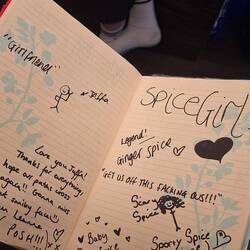 "Girlfriend"
Love you Juffa!
Thanks for everything!
hope our paths cross
again!! Gonna miss
that smiley face
POSH!!!
SPICEGIRL
Legend!
Ginger Spice
"GET US OFF THIS FACKING BUS!!!"
Scary
Spice
Baby
Sporty Spice